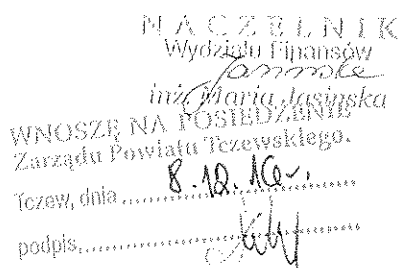 NACZELNIK
Wydziału Finansów
inż. Maria Jasińska
WNOSZĘ NA POSIEDZENIE
Zarządu Powiatu Tczewskiego.
Tczew, dnia 8.12.16r.
podpis